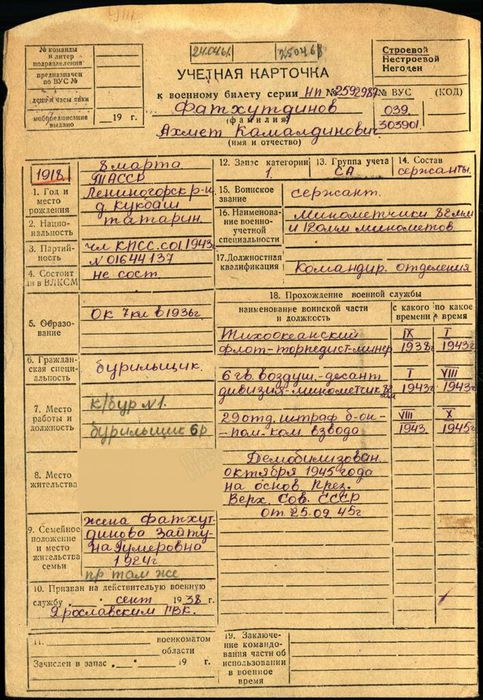 № команды
и литер
подразделения
предназначен
по ВУС №
дцать и часы явки
мобпредписание
выдано " " 19 г.
24.04.61. 25.04.68
УЧЕТНАЯ КАРТОЧКА
к военному билету серии НП № 2592987
Фатхутдинов
(фамилия)
Ахмет Камалдинович
(имя и отчество)
Строевой
Нестроевой
Негоден
№ ВУС (КОД)
039.
303901
1918, 8 марта
ТАССР
Лениногорск р-н,
д Куюаш
1. Год и
место
рождения
2. Нацио-
нальность
татарин.
3. Партий-
ность
чл КПСС. со 1943
№ 01644137
4. Состоит
ли в ВЛКСМ
не сост.
5. Образо-
вание
ОК 7 кл в 1936г.
6. Граждан-
ская специ-
альность
бурильщик.
7. Место
работы и
должность
к/бур № 1.
бурильщик 6р
8. Место
жительства
9. Семейное
положение
и место
жительства
семьи
жена Фатхут-
динова Зайту-
на Гумеровна
1924г
пр там же
10. Призван на действительную военную
службу " " сент 1938 г.
Ярославским ГВК.
11. военкоматом
области
Зачислен в запас " " 19 г.
12. Запас категории
1.
13. Группа учета
СА
14. Состав
сержанты.
15. Воинское
звание
сержант.
16. Наименование
военно-
учетной
специальности
Минометчики 82мм
и 120мм минометов.
17. Должностная
квалификация
Командир. отделения
18. Прохождение военной службы
наименование воинской части
и должность
с какого
времени
по какое
время
Тихоокеанский
флот-торпедист-минер
IX
1938г
I
1943г
6 гв. воздуш.-десант
дивизия-минометчик 82
I
1943г
VIII
1943г
29 отд. штраф б-он-
-пом. ком. взвода
VIII
1943
X
1945г
Демобилизован.
октября 1945 года
на основ През.
Верх. Сов. СССР
от 25.09 45г
19. Заключение
командования
части об
использовании
в военное
время